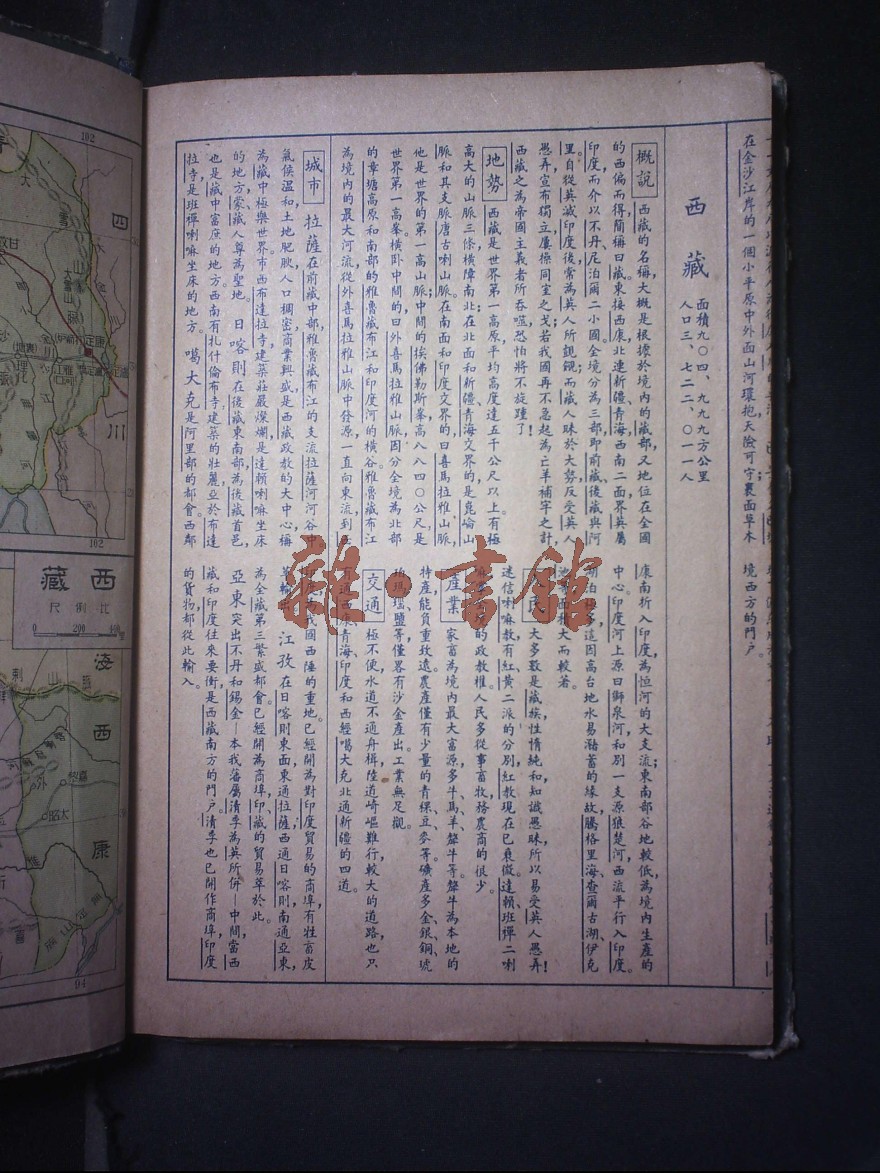 在金沙江岸的一個小平原中外面山河環抱天險可守裏面草木
境西方的門戶。
西藏
面積九〇四、九九九方公里
人口三、七二二、〇一一人
概說 西藏的名稱，大概是根據於境內的藏部，又地位在全國
的西偏而得，簡稱曰藏。東接西康，北連新疆青海，西南二面界英屬
印度，而介以不丹尼泊爾二小國。全境分為三部，即前藏後藏與阿
里。自從英滅印度後，常為英人所覬覦；而藏人昧於大勢，反受英人
愚弄，宣布獨立，屢操同室之戈。若我國再不急起為亡羊補牢之計，
西藏之為帝國主義者所吞噬，恐怕將不旋踵了！
地勢 西藏是世界第一高原，平均高度達五千公尺以上。有極
高大的山脈三條，橫障南北：在北面和新疆青海交界的，是崑崙山
脈，和其支脈唐古喇山脈。在南面和印度交界的，曰喜馬拉雅山脈，
他是世界的第一高山脈；中間的埃佛勒斯峯，高八八四〇公尺，是
世界第一高峯。橫臥中間的，曰外喜馬拉雅山脈，因分全境為北部
的章塘高原，和南部的雅魯藏布江和印度河的橫谷。雅魯藏布江
為境內的最大河流，從外喜馬拉雅山脈中發源，一直向東流，到
康南折入印度，為恒河的大支流；東南部谷地較低，為境內生產的
中心。印度河上源曰獅泉河，和別一支源狼楚河，西流平行入印度。
湖泊極多，這因高台地水易瀦蓄的緣故。騰格里海、查爾古湖、伊克
池等面積大而較著。
人民 大多數是藏族，性情純和，知識愚昧，所以易受英人愚弄！
迷信喇嘛教，有紅黃二派的分別，紅教現在已衰微。達賴班禪二喇
的政教權。人民多從事畜牧，務農商的很少。
產業 家畜為境內最大富源，多牛馬羊犛牛等。犛牛為本地的
特產，能負重致遠。農產僅有少量的青稞豆麥等。礦產多金銀銅琥
珀瑪瑙鹽等，僅畧有沙金產出。工業無足觀。
交通 極不便，水道不通舟楫，陸道崎嶇難行，較大的道路，也只
有通西康青海印度和西經噶大克北通新疆的四道。
城市 拉薩在前藏中部，雅魯藏布江的支流拉薩河河谷中，
氣候溫和，土地肥腴，人口稠密，商業興盛，是西藏政教的大中心，稱
為藏中極樂世界。市西布達拉寺，建築莊嚴燦爛，是達賴喇嘛坐床
的地方，蒙藏人尊為聖地。日喀則在後藏東南部，為後藏首邑，
也是藏中富庶的地方。西南有扎什倫布寺，建築的壯麗，亞於布達
拉寺，是班禪喇嘛坐床的地方。噶大克是阿里部的都會，西鄰
為我國西陲的重地，已經開為對印度貿易的商埠，有牲畜皮
革輸出。江孜在日喀則東面，東通拉薩，西通日喀則，南通亞東，
為全藏第三繁盛都會，已經開為商埠，印藏的貿易萃於此。
亞東突出不丹和錫金—本我藩屬，清季為英所併—中間，當西
藏和印度往來要衝，是西藏南方的門戶。清季也已開作商埠，印度
的貨物都從此輸入。
雜·書館
102
四
川
大
雪
山
康定
102
西藏
比例尺
0 200 400
海
西
康
太昭
94